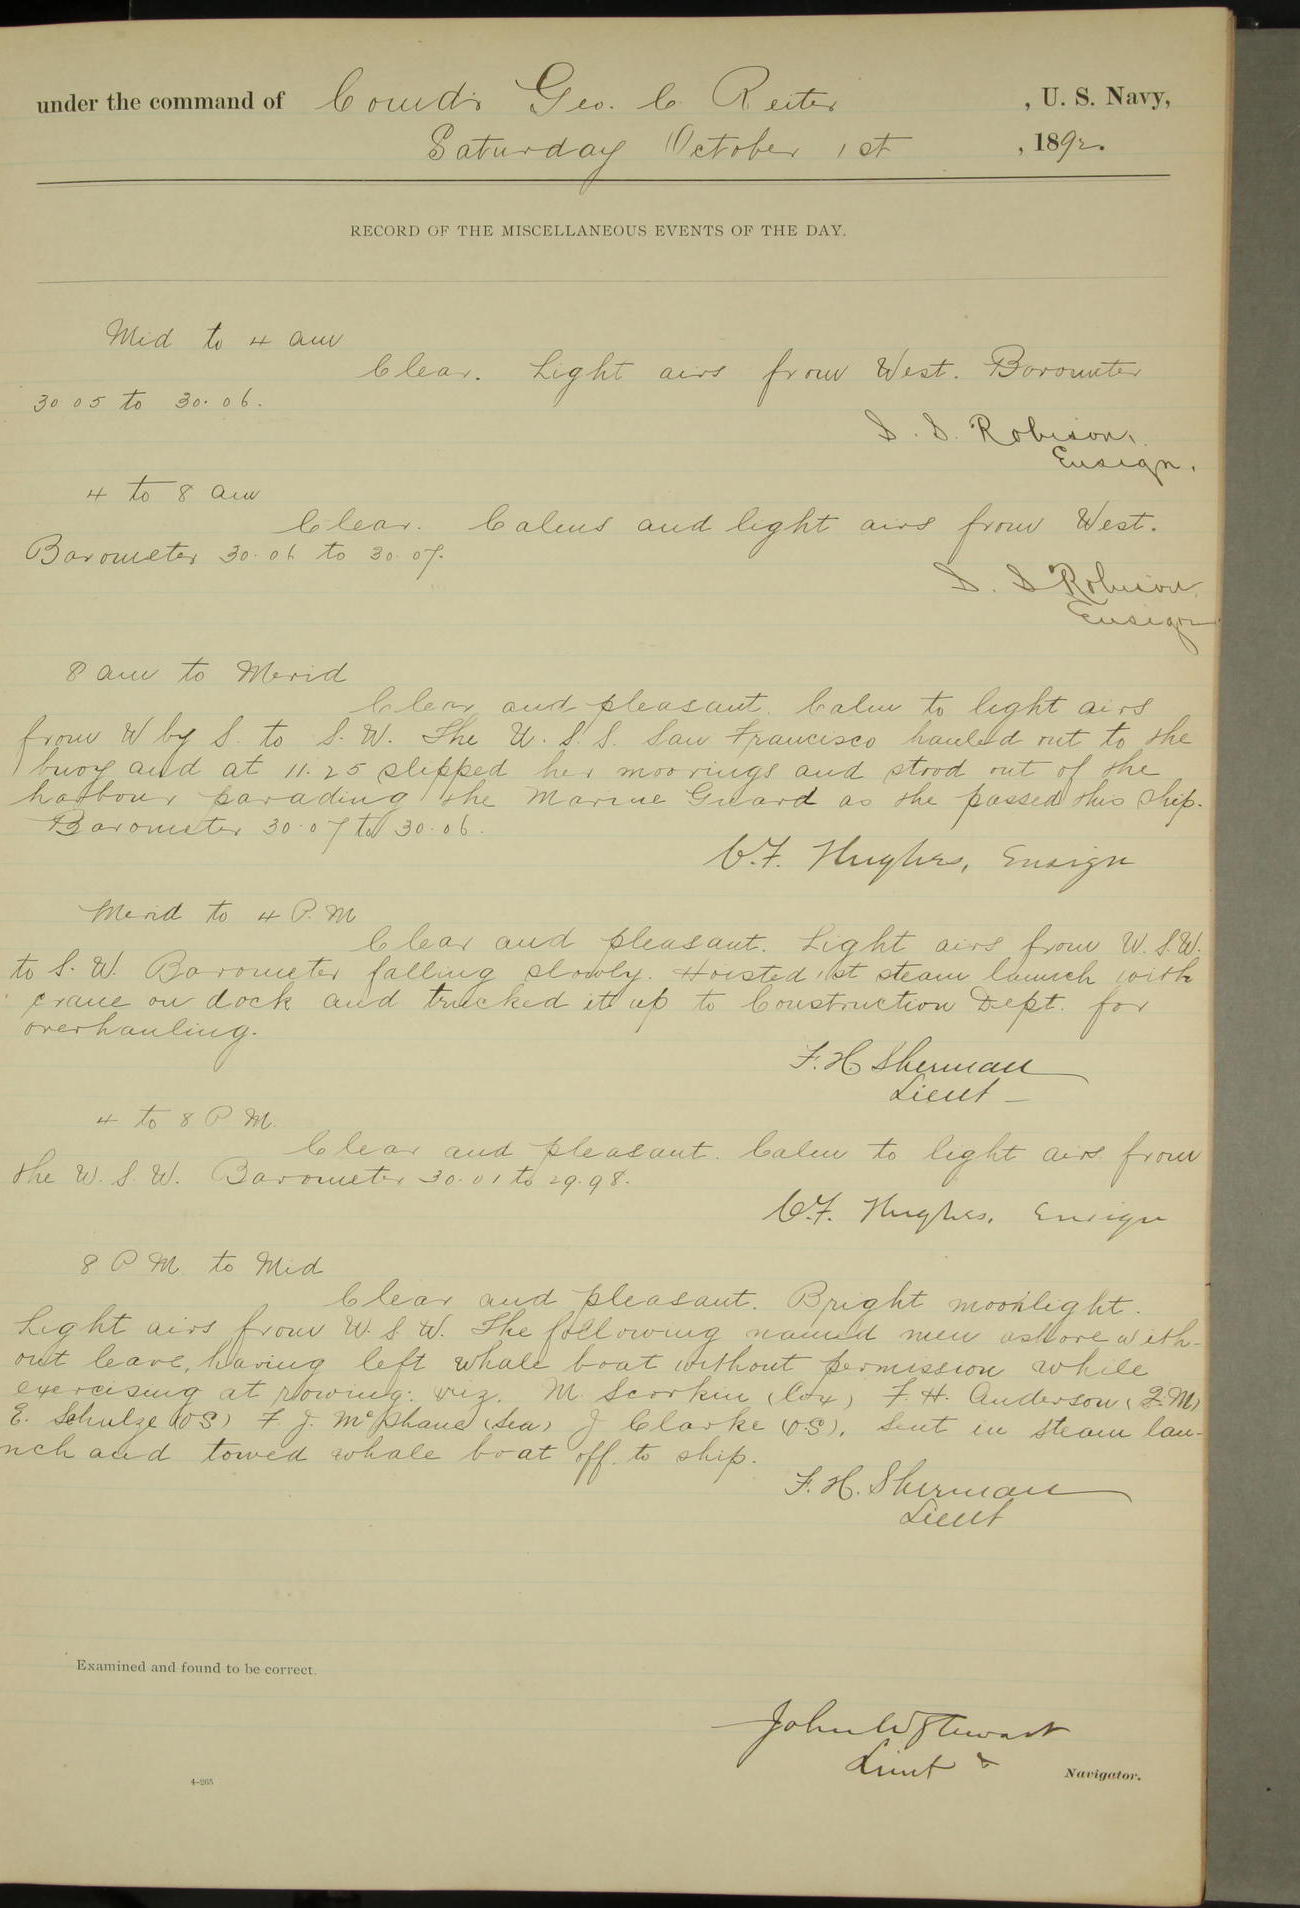 under the command of Comd'r Geo. C Reiter , U. S. Navy,
Saturday October 1st , 1892.
RECORD OF THE MISCELLANEOUS EVENTS OF THE DAY.
Mid to 4 am
Clear. Light airs from West. Barometer
30 05 to 30.06.
S. S. Robison,
Ensign.
4 to 8 am
Clear. Calms and light airs from West.
Barometer 30.06 to 30.07.
S. S Robison
Ensign
8 am to Merid
Clear and pleasant. Calm to light airs
from W by S. to S. W. The U. S. S. San Francisco hauled out to the
buoy and at 11.25 slipped her moorings and stood out of the
harbour parading the Marine Guard as she passed this ship.
Barometer 30.07 to 30.06.
C.F. Hughes, Ensign
Merid to 4 P.M
Clear and pleasant. Light airs from W. S.W.
to S. W. Barometer falling slowly. Hoisted 1st steam launch with
crane on dock and trucked it up to Construction Dept. for
overhauling.
F. H Sherman
Lieut
4 to 8 P M.
Clear and pleasant. Calm to light airs from
the W. S. W. Barometer 30.01 to 29.98.
C.F. Hughes, Ensign
8 P M to Mid
Clear and pleasant. Bright moonlight.
Light airs from W. S W. The following named men ashore with-
out leave, having left whale boat without permission while
exercising at rowing: viz. M. Scorkin (Cox) F. H. Anderson (F.M)
E. Schulze (OS) F J. McShane (Sea) J Clarke (OS). Sent in steam lau-
nch and towed whale boat off to ship.
F. H. Sherman
Lieut
Examined and found to be correct.
John W Stewart
Lieut &
Navigator.
4-265